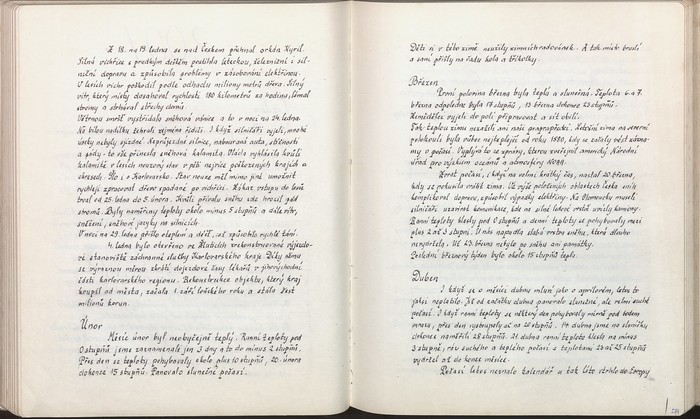 Z 18. na 19. ledna se nad Českem přehnal orkán Kyril.
Silná vichřice s prudkým deštěm postihla leteckou, železniční i sil-
niční dopravu a způsobila problémy v zásobování elektřinou.
V lesích vichr poškodil podle odhadu miliony metrů dřeva. Silný
vítr, který místy dosahoval rychlosti 180 kilometrů za hodinu, lámal
stromy a strhával střechy domů.
Větrnou smršť vystřídala sněhová vánice a to v noci na 24. ledna.
Na bílou nadílku žehrali zejména řidiči. I když silničáři vyjeli, mnohé
úseky nebyly sjízdné. Neprůjezdné silnice, nabouraná auta, stížnosti
a závěje - to vše přinesla sněhová kalamita. Vláda vyhlásila kvůli
kalamitě v lesích nouzový stav v pěti nejvíce postižených krajích a
okresech. Šlo i o Karlovarsko. Stav nouze měl mimo jiné umožnit
rychleji zpracovat dřevo spadané po vichřici. Zákaz vstupu do lesů
trval od 25. ledna do 5. února. Kvůli přívalu sněhu zde hrozil pád
stromů. Byly naměřeny teploty okolo minus 5 stupňů a dále vítr,
sněžení, sněhové jazyky na silnicích
V noci na 29. ledna přišlo oteplení a déšť, což způsobilo rychlé tání.
4. ledna bylo otevřeno ve zrekonstruované výjezdo-
vé stanoviště záchranné služby Karlovarského kraje. Díky němu
se výraznou měrou zkrátí dojezdové časy lékařů v jihovýchodní
části karlovarského regionu. Rekonstrukce objektu, který kraj
koupil od města, začala 1. září loňského roku a stála šest
milionů korun.
Únor
Měsíc únor byl neobyčejně teplý. Ranní teploty pod
0 stupňů jsme zaznamenali jen 3 dny a to do minus 2 stupňů.
Přes den se teploty pohybovaly okolo plus 10 stupňů, 20. února
dokonce 15 stupňů. Panovalo slunečné počasí.
Děti si v této zimě neužily zimních radovánek. A tak místo bruslí
a saní přišly na řadu kola a tříkolky.
Březen
První polovina března byla teplá a slunečná. Teplota 6. a 7.
března odpoledne byla 17 stupňů, 13. března dokonce 23 stupňů.
Zemědělci vyjeli do polí připravovat a sít obilí.
Tak teplou zimu nezažili ani naši praprapředci. Letošní zima na severní
polokouli byla vůbec nejteplejší od roku 1880, kdy se začaly vést zázna-
my o počasí. Vyplývá to ze zprávy, kterou uveřejnil americký Národní
úřad pro výzkum oceánů a atmosféry NOAA.
Zvrat počasí, i když na velmi krátký čas, nastal 20. března,
kdy se pokusila vrátit zima. Už výše položených oblastech Česka sníh
komplikoval dopravu, způsobil výpadky elektřiny. Na Olomoucku museli
silničáři uzavřít komunikace, kde na silné ledové vrstvě uvízly kamiony.
Ranní teploty klesly pod 0 stupňů a denní teploty se pohybovaly mezi
plus 2 až 3 stupni. U nás napadla slabá vrstva sněhu, která dlouho
nevydržela. Už 23. března nebylo po sněhu ani památky.
Poslední březnový týden bylo okolo 15 stupňů tepla.
Duben
I když se o měsíci dubnu mluví jako o aprílovém, letos to
jaksi neplatilo. Již od začátku dubna panovalo slunečné, ale velmi suché
počasí. I když ranní teploty se některý den pohybovaly mírně pod bodem
mrazu, přes den vystupovaly až na 20 stupňů. 14. dubna jsme na sluníčku
dokonce naměřili 28 stupňů. 21. dubna ranní teplota klesla na minus
3 stupně, ráz suchého a teplého počasí s teplotami 24 až 25 stupňů
vydržel až do konce měsíce.
Počasí letos neznalo kalendář a tak léto vtrhlo do Evropy